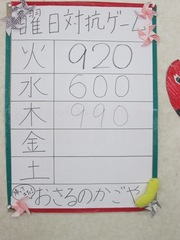 曜日対抗ゲーム
火 920
水 600
木 990
金
土
おさるのかごや